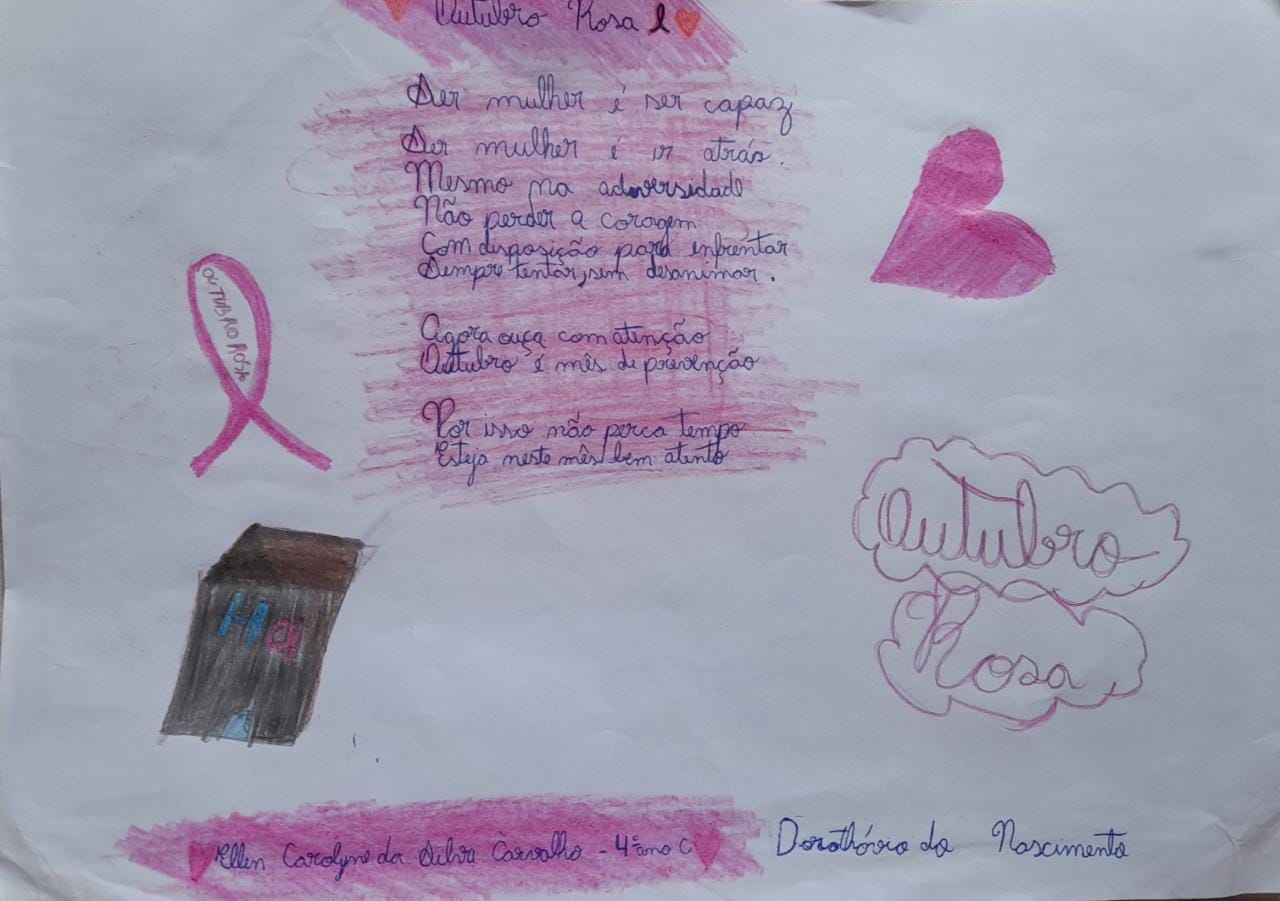 Outubro Rosa
Ser mulher é ser capaz
Ser mulher é ir atrás.
Mesmo na adversidade
Não perder a coragem
Com disposição para enfrentar
Sempre tentar, sem desanimar.
Agora ouça com atenção
Outubro é mês de prevenção
Por isso não perca tempo
Esteja neste mês bem atento
OUTUBRO ROSA
Outubro
Rosa
Ha
Ellen Carolyne da Silva Carvalho - 4º ano C
Dorothóvio do Nascimento